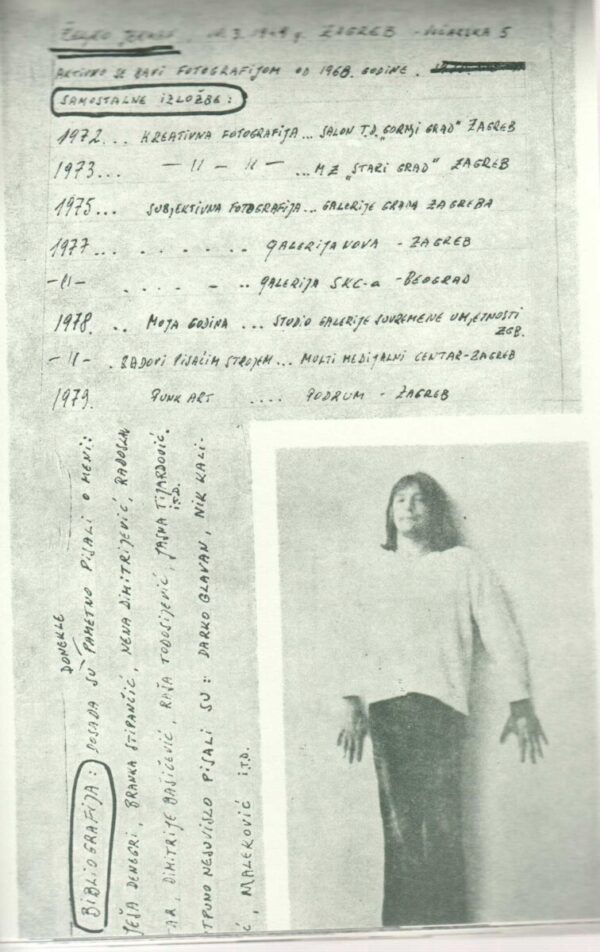 ŽELJKO JERMAN, 3. 1949 g. ZAGREB - VOĆARSKA 5
AKTIVNO SE BAVI FOTOGRAFIJOM OD 1968. GODINE.
SAMOSTALNE IZLOŽBE:
1972... KREATIVNA FOTOGRAFIJA... SALON T.D. „GORNJI GRAD" ZAGREB
1973... — 11 — 11 — ... MZ „STARI GRAD" ZAGREB
1975... SUBJEKTIVNA FOTOGRAFIJA... GALERIJE GRADA ZAGREBA
1977... . . . . . GALERIJA NOVA - ZAGREB
-11- . . . . - .. GALERIJA SKC-a - BEOGRAD
1978. .. MOJA GODINA ... STUDIO GALERIJE SUVREMENE UMJETNOSTI
ZGB.
-11- . RADOVI PISAĆIM STROJEM... MULTI MEDIJALNI CENTAR-ZAGREB
1979. PUNK ART .... PODRUM - ZAGREB
DONEKLE
BIBLIOGRAFIJA: DOSADA SU PAMETNO PISALI O MENI:
JEŠA DENEGRI, BRANKA STIPANČIĆ, NENA DIMITRIJEVIĆ, RADOSLA
TAR, DIMITRIJE BAŠIČEVIĆ, RAŠA TODOSIJEVIĆ, JASNA TIJARDOVIĆ.
ITD.
TPUNO NESUVISLO PISALI SU: DARKO GLAVAN, NIK KALI-
Ć, MALEKOVIĆ ITD.